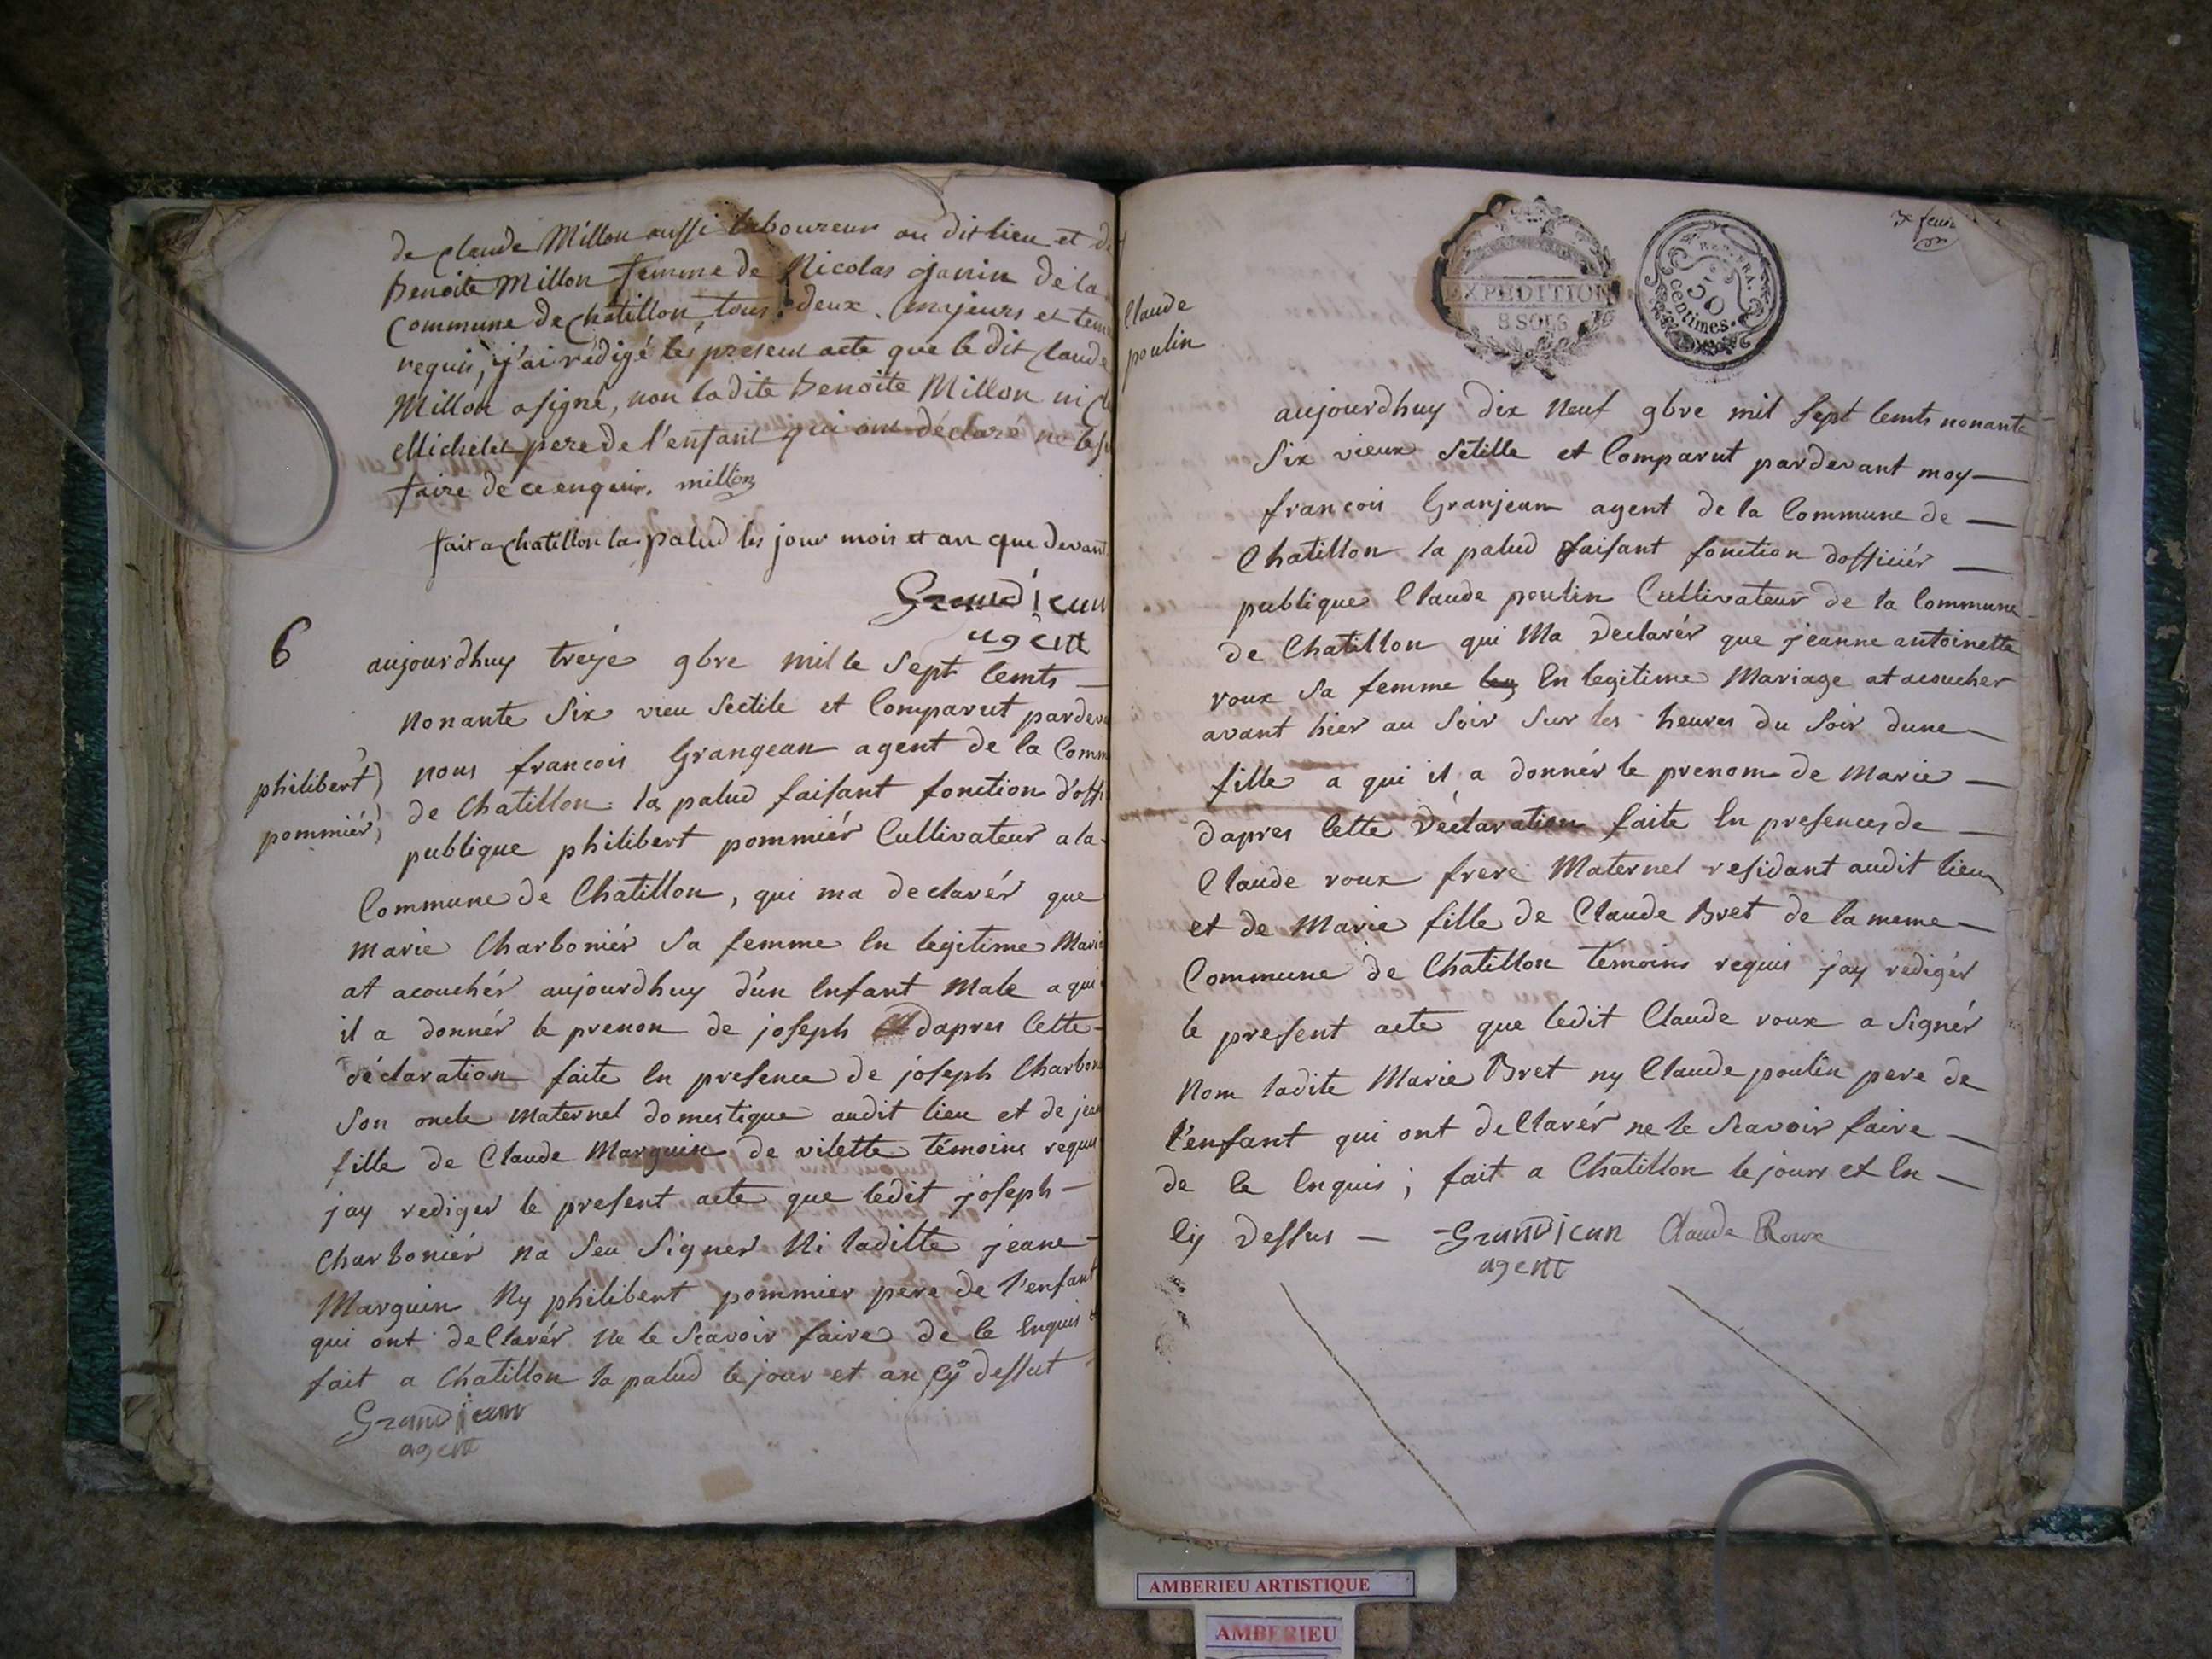 de Claude Millon aussi laboureur au dit lieu et de
benoite Millon femme de Nicolas janin de la
commune de chatillon, tous deux majeurs et tem
requis, j'ai rédigé le present acte que le dit Claude
Millon a signé, non ladite benoite Millon ni
Michelet pere de l'enfant qui ont déclaré ne le
faire de ce enquis. millon
fait a chatillon la palud les jour mois et an que devant
Grandjean
agent
6
aujourdhuy treize 9bre mille Sept Cents
nonante Six vieu Sectile et Comparut pardeva
nous francois Grangean agent de la Comm
philibert
pommiér
de Chatillon la palud faisant fonction d'offi
publique philibert pommiér Cultivateur a la
Commune de Chatillon, qui ma declarér que
marie Charboniér Sa femme En legitime Maria
at acouchér aujourdhuy d'un Enfant Male a qui
il a donnér le prenon de joseph dapres Cette
déclaration faite En presence de joseph Charbon
Son oncle Maternel domestique audit lieu et de jean
fille de Claude Marguin de vilette témoins requis
jay rediger le present acte que ledit joseph
Charboniér na Seu Signer Ni laditte jeane
Marguin Ny philibert pommier pere de l'enfant
qui ont deClarér Ne le Scavoir faire de Ce Enquis
fait a Chatillon la palud le jour et an Cy dessut
Grandjean
agent
EXPEDITION
8 SOLS
50
centimes.
Claude
poulin
aujourdhuy dix Neuf 9bre mil Sept Cents nonante
Six vieux Setille et Comparut pardevant moy
francois Granjean agent de la Commune de
Chatillon la palud faisant fonction dofficiér
publique Claude poulin Cultivateur de la Commune
de Chatillon qui Ma Declarér que jeanne antoinette
roux Sa femme En legitime Mariage at acoucher
avant hier au Soir Sur les heures du Soir dune
fille a qui il a donnér le prenom de Marie
dapres Cette Déclaration faite En presences de
Claude roux frere Maternel residant audit lieu
et de Marie fille de Claude Bret de la meme
Commune de Chatillon témoins requis jay redigér
le present acte que ledit Claude roux a Signér
Nom ladite Marie Bret ny Claude poulin pere de
l'enfant qui ont deClarér ne le Scavoir faire
de Ce Enquis ; fait a Chatillon le jour et En
Cy dessus Grandjean Claude Roux
agent
AMBERIEU ARTISTIQUE
AMBERIEU